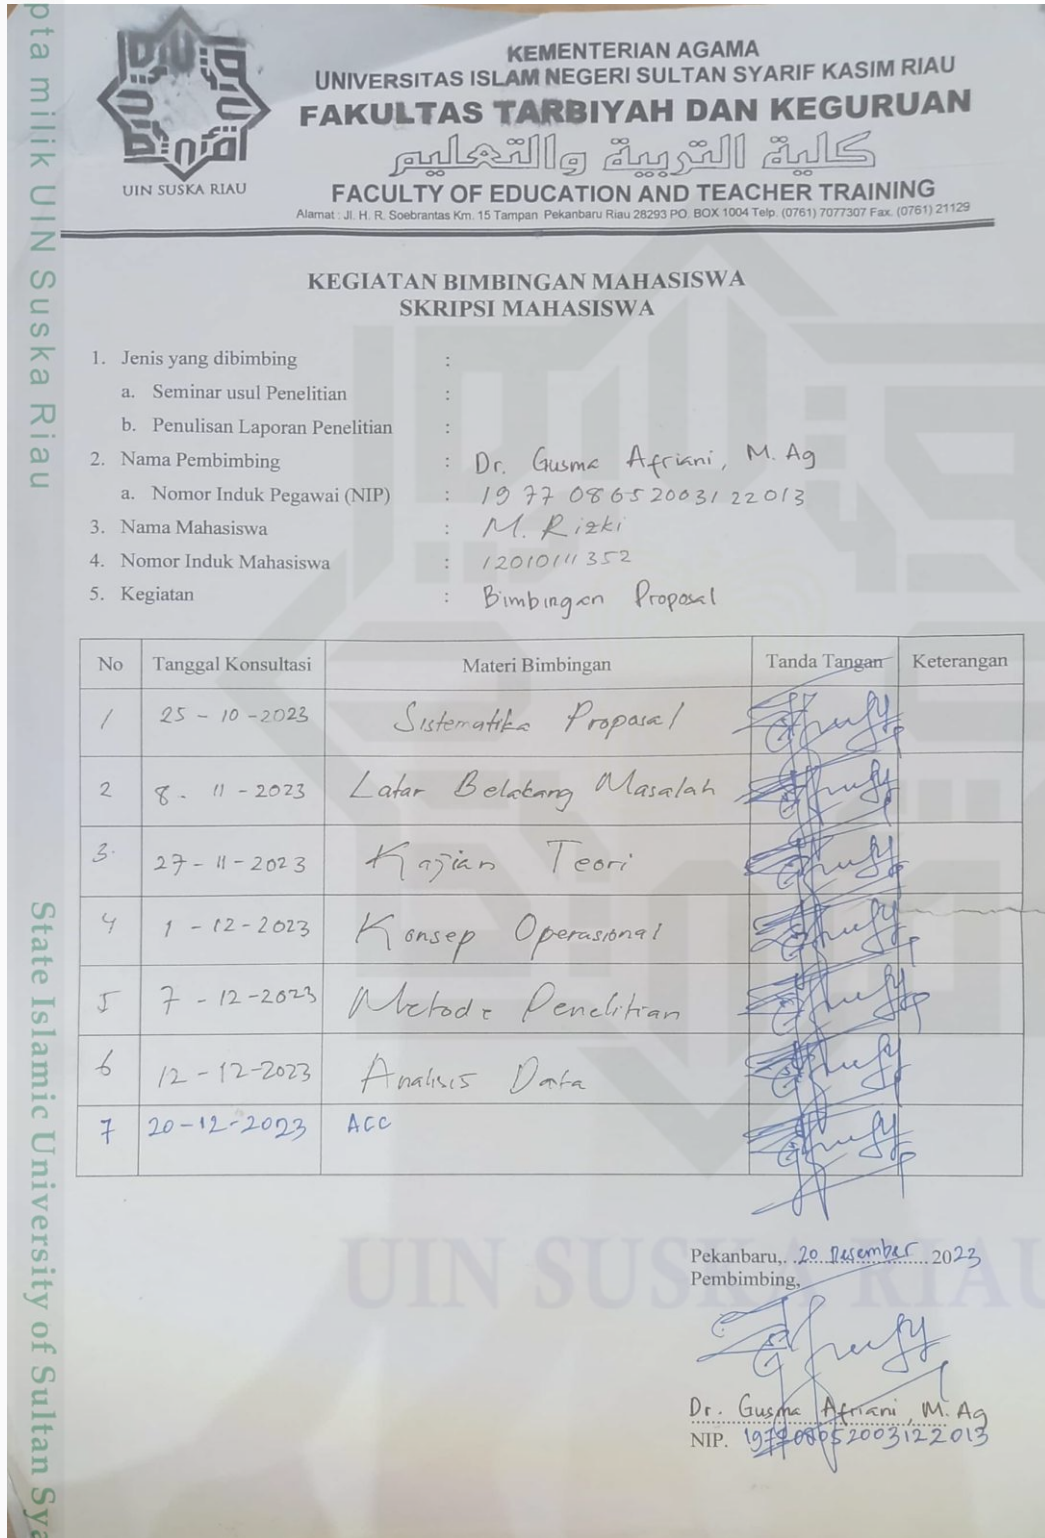 pta milik UIN Suska Riau
State Islamic University of Sultan Sya
UIN SUSKA RIAU
KEMENTERIAN AGAMA
UNIVERSITAS ISLAM NEGERI SULTAN SYARIF KASIM RIAU
FAKULTAS TARBIYAH DAN KEGURUAN
كلية التربية والتعليم
FACULTY OF EDUCATION AND TEACHER TRAINING
Alamat : Jl. H. R. Soebrantas Km. 15 Tampan Pekanbaru Riau 28293 PO. BOX 1004 Telp. (0761) 7077307 Fax. (0761) 21129
KEGIATAN BIMBINGAN MAHASISWA
SKRIPSI MAHASISWA
1. Jenis yang dibimbing :
a. Seminar usul Penelitian :
b. Penulisan Laporan Penelitian :
2. Nama Pembimbing : Dr. Gusma Afriani, M. Ag
a. Nomor Induk Pegawai (NIP) : 19770865 2003122013
3. Nama Mahasiswa : M. Rizki
4. Nomor Induk Mahasiswa : 12010111352
5. Kegiatan : Bimbingan Proposal
No Tanggal Konsultasi Materi Bimbingan Tanda Tangan Keterangan
1 25 - 10 - 2023 Sistematika Proposal
2 8 - 11 - 2023 Latar Belakang Masalah
3. 27 - 11 - 2023 Kajian Teori
4 1 - 12 - 2023 Konsep Operasional
5 7 - 12 - 2023 Metode Penelitian
6 12 - 12 - 2023 Analisis Data
7 20 - 12 - 2023 ACC
UIN SUSKA RIAU
Pekanbaru, 20 Desember 2023
Pembimbing,
Dr. Gusma Afriani, M. Ag
NIP.